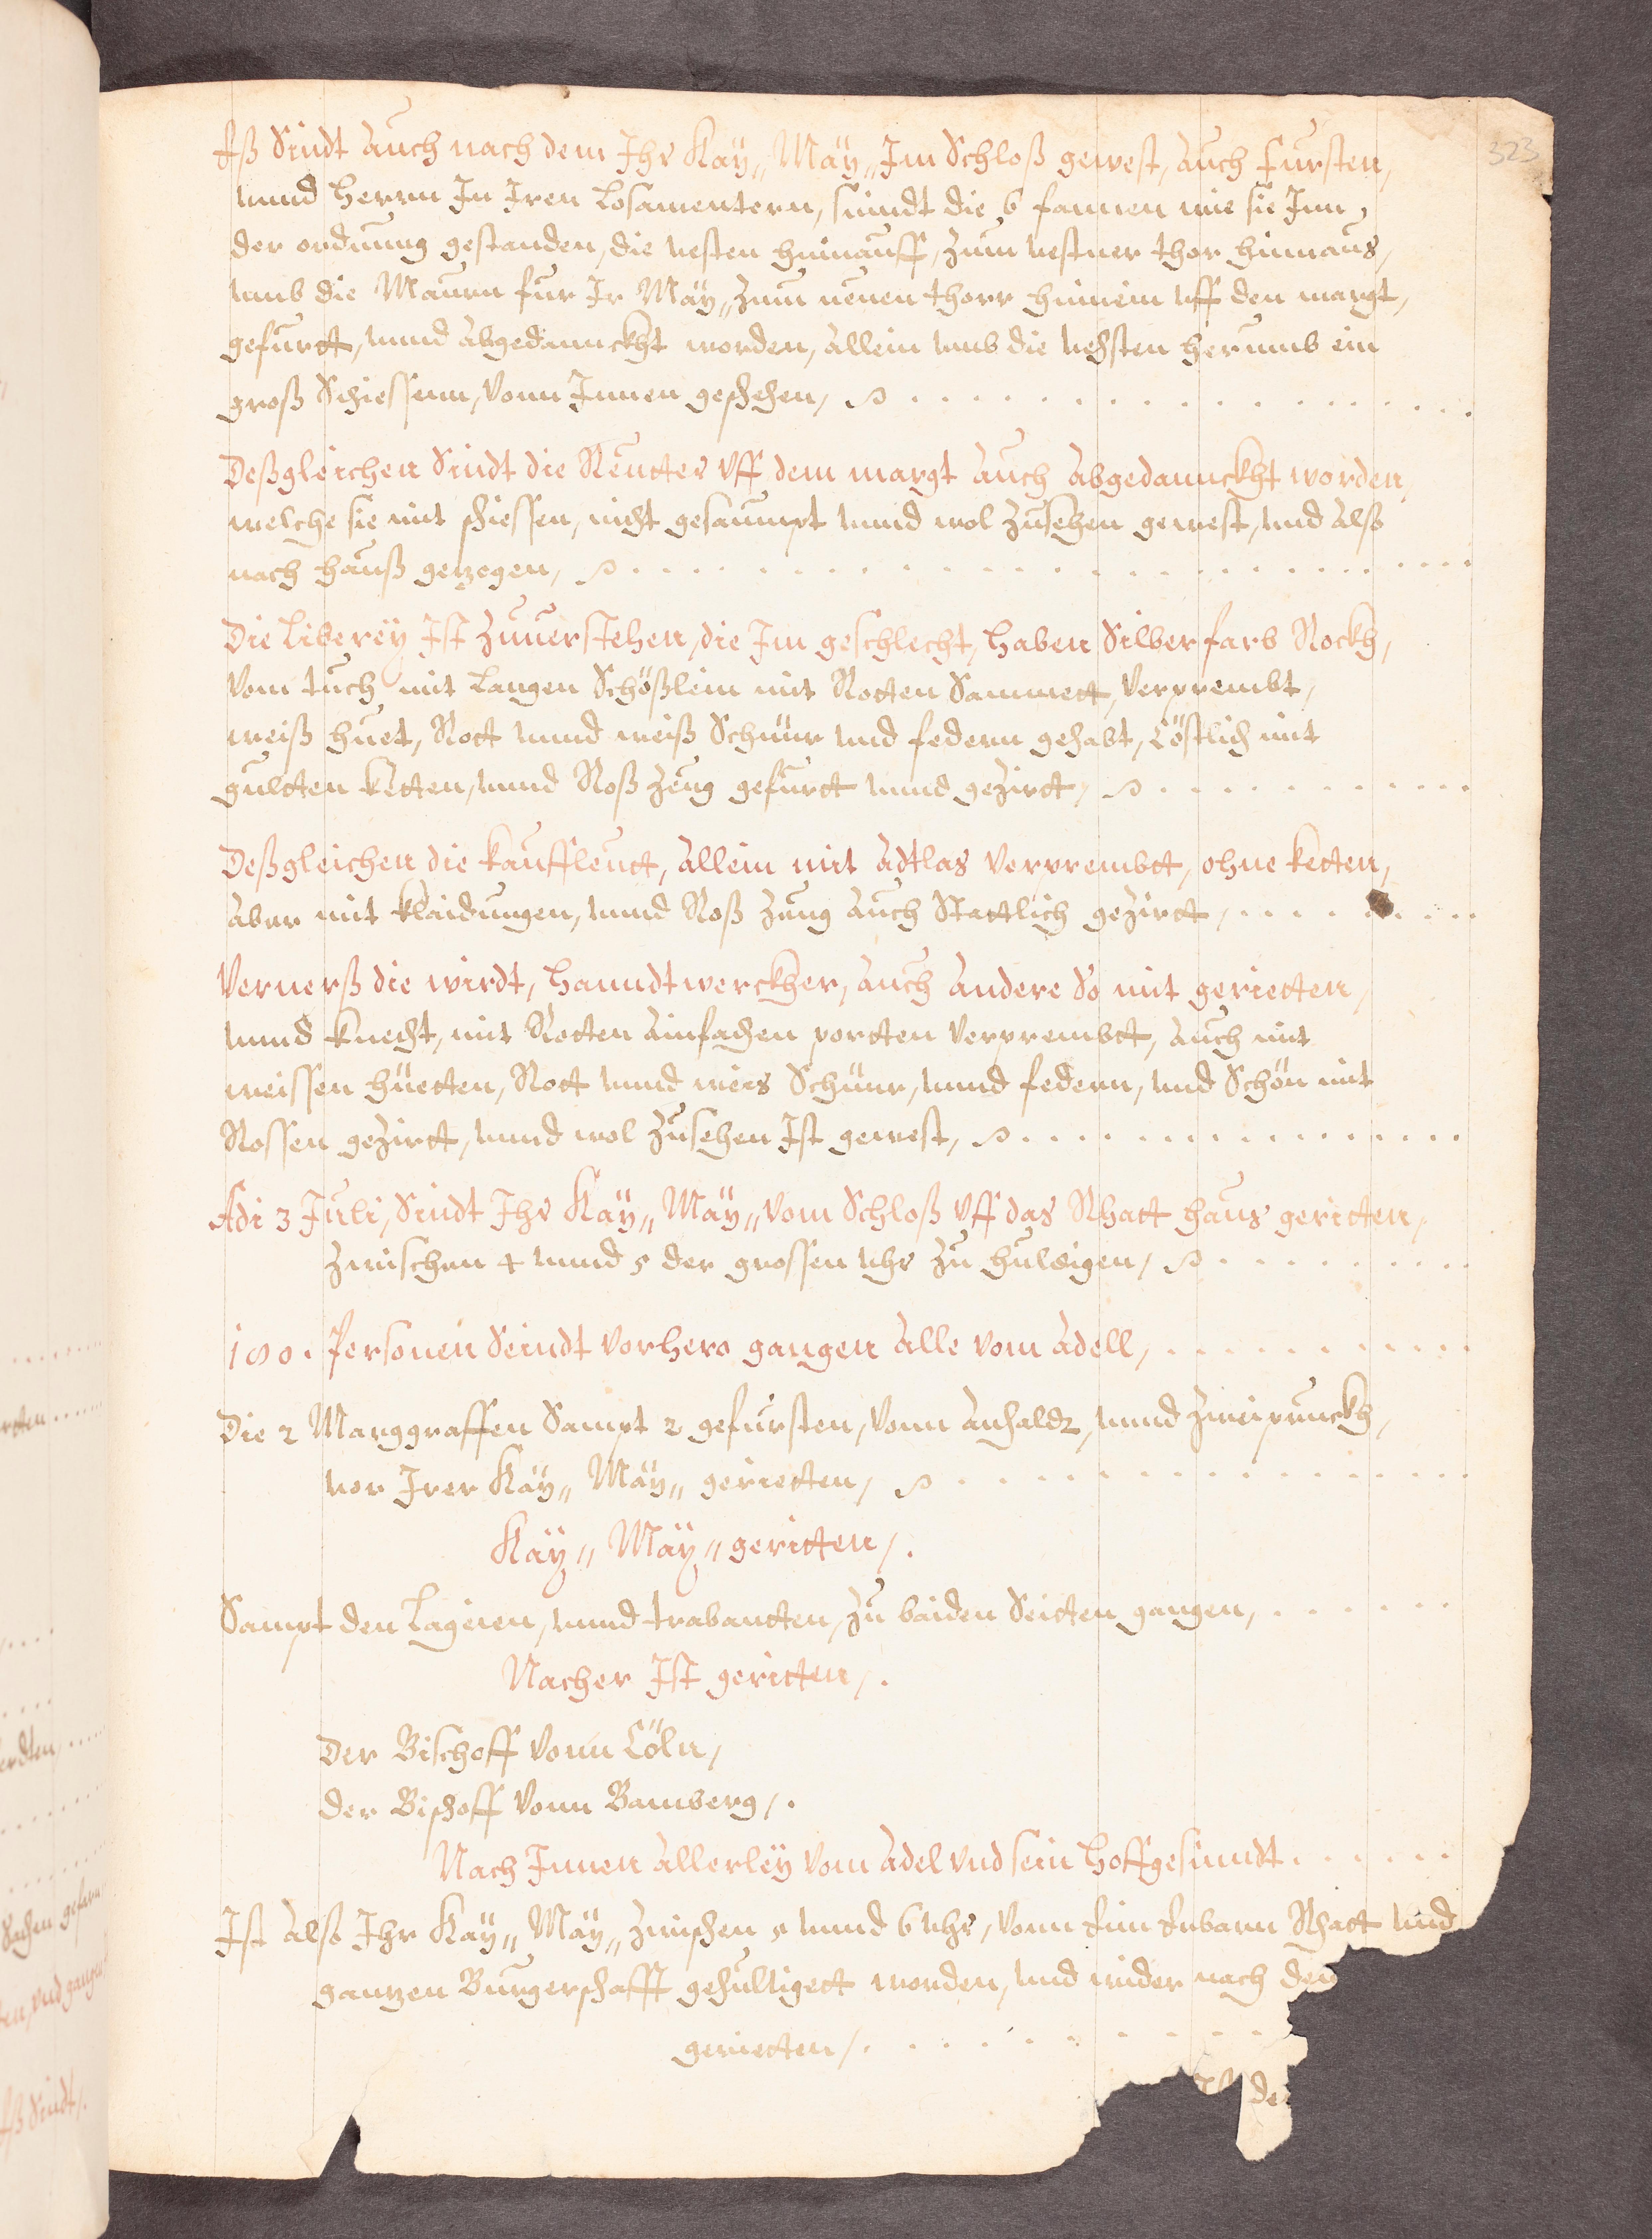 323
Eß Sindt Auch nach dem Ihr Kaÿ„ Maÿ„ Im Schloß gewest, Auch Fursten,
unnd Herrn In Iren Losamentern, sinndt die 6 fannen wie sie Inn
der ordnung gestanden, die vesten hinnauff, zum vestner thor hinnaus,
umb die Maurn fur Ir Maÿ„ zum neuen thorr hinnein uff den margt,
gefurtt, unnd Abgedannckht worden, Allein umb die vehsten herumb ein
groß Schiessenn, vonn Innen geschehen,
Deßgleichen Sindt die Reutter Vff dem margt Auch Abgedannckht worden,
welche sie mit schiessen, nicht gesaumpt unnd wol zusehen gewest, und Also
nach hauß gezogen,
Die Liberëÿ Ist zuuerstehen, die Im geschlecht, haben Silberfarb Rockh,
vom tuch mit Langen Schößlein mit Rotten Sammett, verprembt,
weiß huet, Rott unnd weiß Schnür und federn gehabt, Cöstlich mit
gultten ketten, unnd Roß zeug gefurtt unnd gezirtt,
Deßgleichen die kauffleutt, Allein mit Adtlas verprembtt, ohne ketten,
Aber mit klaidungen, unnd Roß zeug Auch Stattlich gezirtt,
Vernerß die wirdt, Hanndtwerckher, Auch Andere So mit gerietten,
unnd knecht, mit Rotten Ainfachen portten verprembtt, Auch mit
weissen hüetten, Rott unnd weis Schnür, unnd federn, und Schön mit
Rossen gezirtt, unnd wol zusehen Ist gewest,
Adi 3 Juli, Sindt Ihr Kaÿ„ Maÿ„ vom Schloß Vff das Rhatt haus geritten,
zwischen 4 unnd 5 der grossen uhr zu huldigen,
100. Personen Seindt vorhero gangen Alle vom Adell,
Die 2 Marggraffen Sampt 2 gefursten, vonn Anhaldt, unnd zweiprunckh,
vor Irer Kaÿ„ Maÿ„ gerietten,
Kaÿ„ Maÿ„ geritten,.
Sampt den Lageien, unnd trabantten, zu baiden Seitten gangen,
Nacher Ist geritten,.
Der Bischoff vonn Cöln,
der Bischoff vonn Bamberg,.
Nach Innen Allerleÿ vom Adel vnd sein Hoffgesinndt
Ist Also Ihr Kaÿ„ Maÿ„ zwischen 5 unnd 6 uhr, vonn Eim Erbarn Rhatt und
gantzen Burgerschafft gehultigett worden, und wider nach den
gerietten,
Ist de